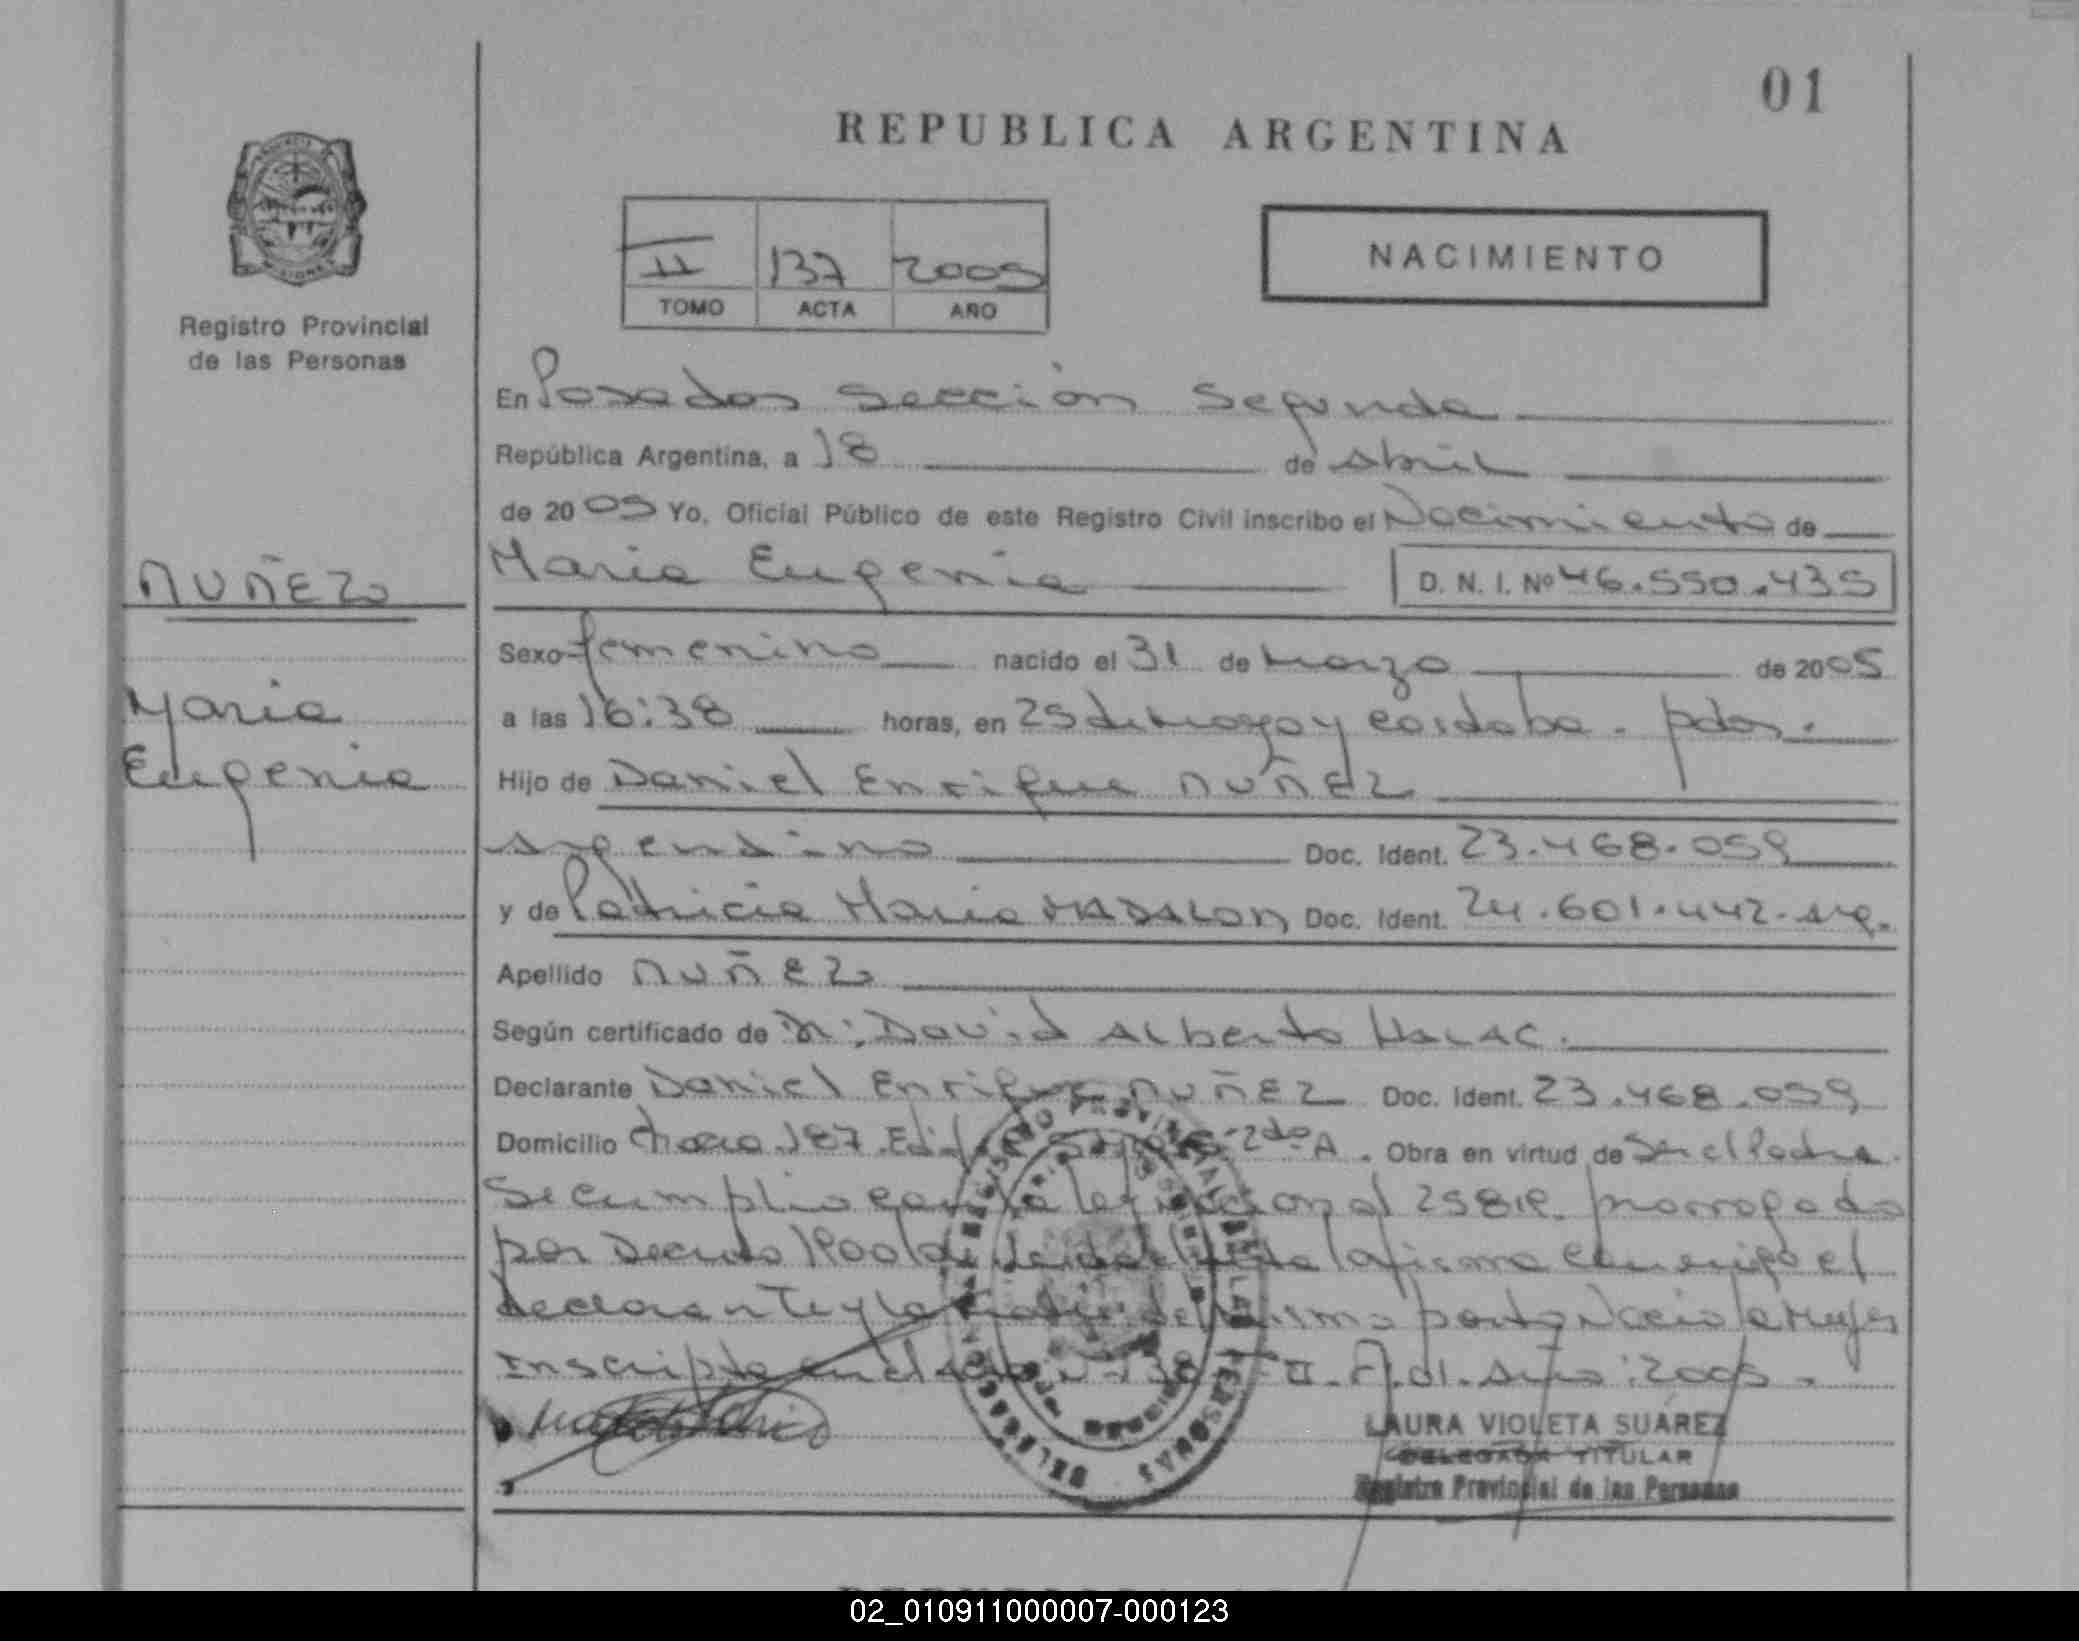 01
REPUBLICA ARGENTINA
II 137 2005
TOMO ACTA AÑO
NACIMIENTO
Registro Provincial
de las Personas
NUÑEZ
Maria
Eugenia
En Posadas Sección Segunda
República Argentina, a 18 de Abril
de 2005 Yo, Oficial Público de este Registro Civil inscribo el Nacimiento de
Maria Eugenia D. N. I. Nº 46.550.435
Sexo femenino nacido el 31 de Marzo de 2005
a las 16:38 horas, en 25 de Mayo y Cordoba. pdas.
Hijo de Daniel Enrique NUÑEZ
Argentino Doc. Ident. 23.468.059
y de Patricia Maria MADALON, Doc. Ident. 24.601.442. Arg.
Apellido NUÑEZ
Según certificado de Dr. David Alberto HALAC.
Declarante Daniel Enrique NUÑEZ Doc. Ident. 23.468.059
Domicilio Chaca 187. Edif. 2do A. Obra en virtud de Ser el Padre.
Se cumplio con la ley nacional 25819. prorrogada
por Decreto 1900 la misma el
declarante y la del mismo parto Nacio la Mujer
Inscripta en el acta Nº 138 T II. Año: 2005.
LAURA VIOLETA SUAREZ
DELEGADA TITULAR
Registro Provincial de las Personas
02_010911000007-000123